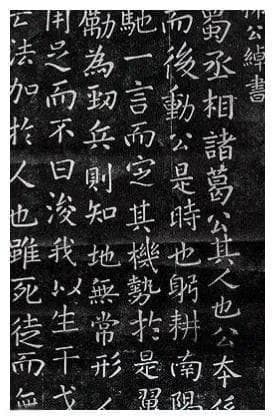 公綽書
蜀丞相諸葛公其人也公本
而後動公是時也躬耕南陽
馳一言而定其機勢於是翼
勵為勁兵則知地無常形人
用足而不曰浚我以生干戈
法加於人也雖死徒而無